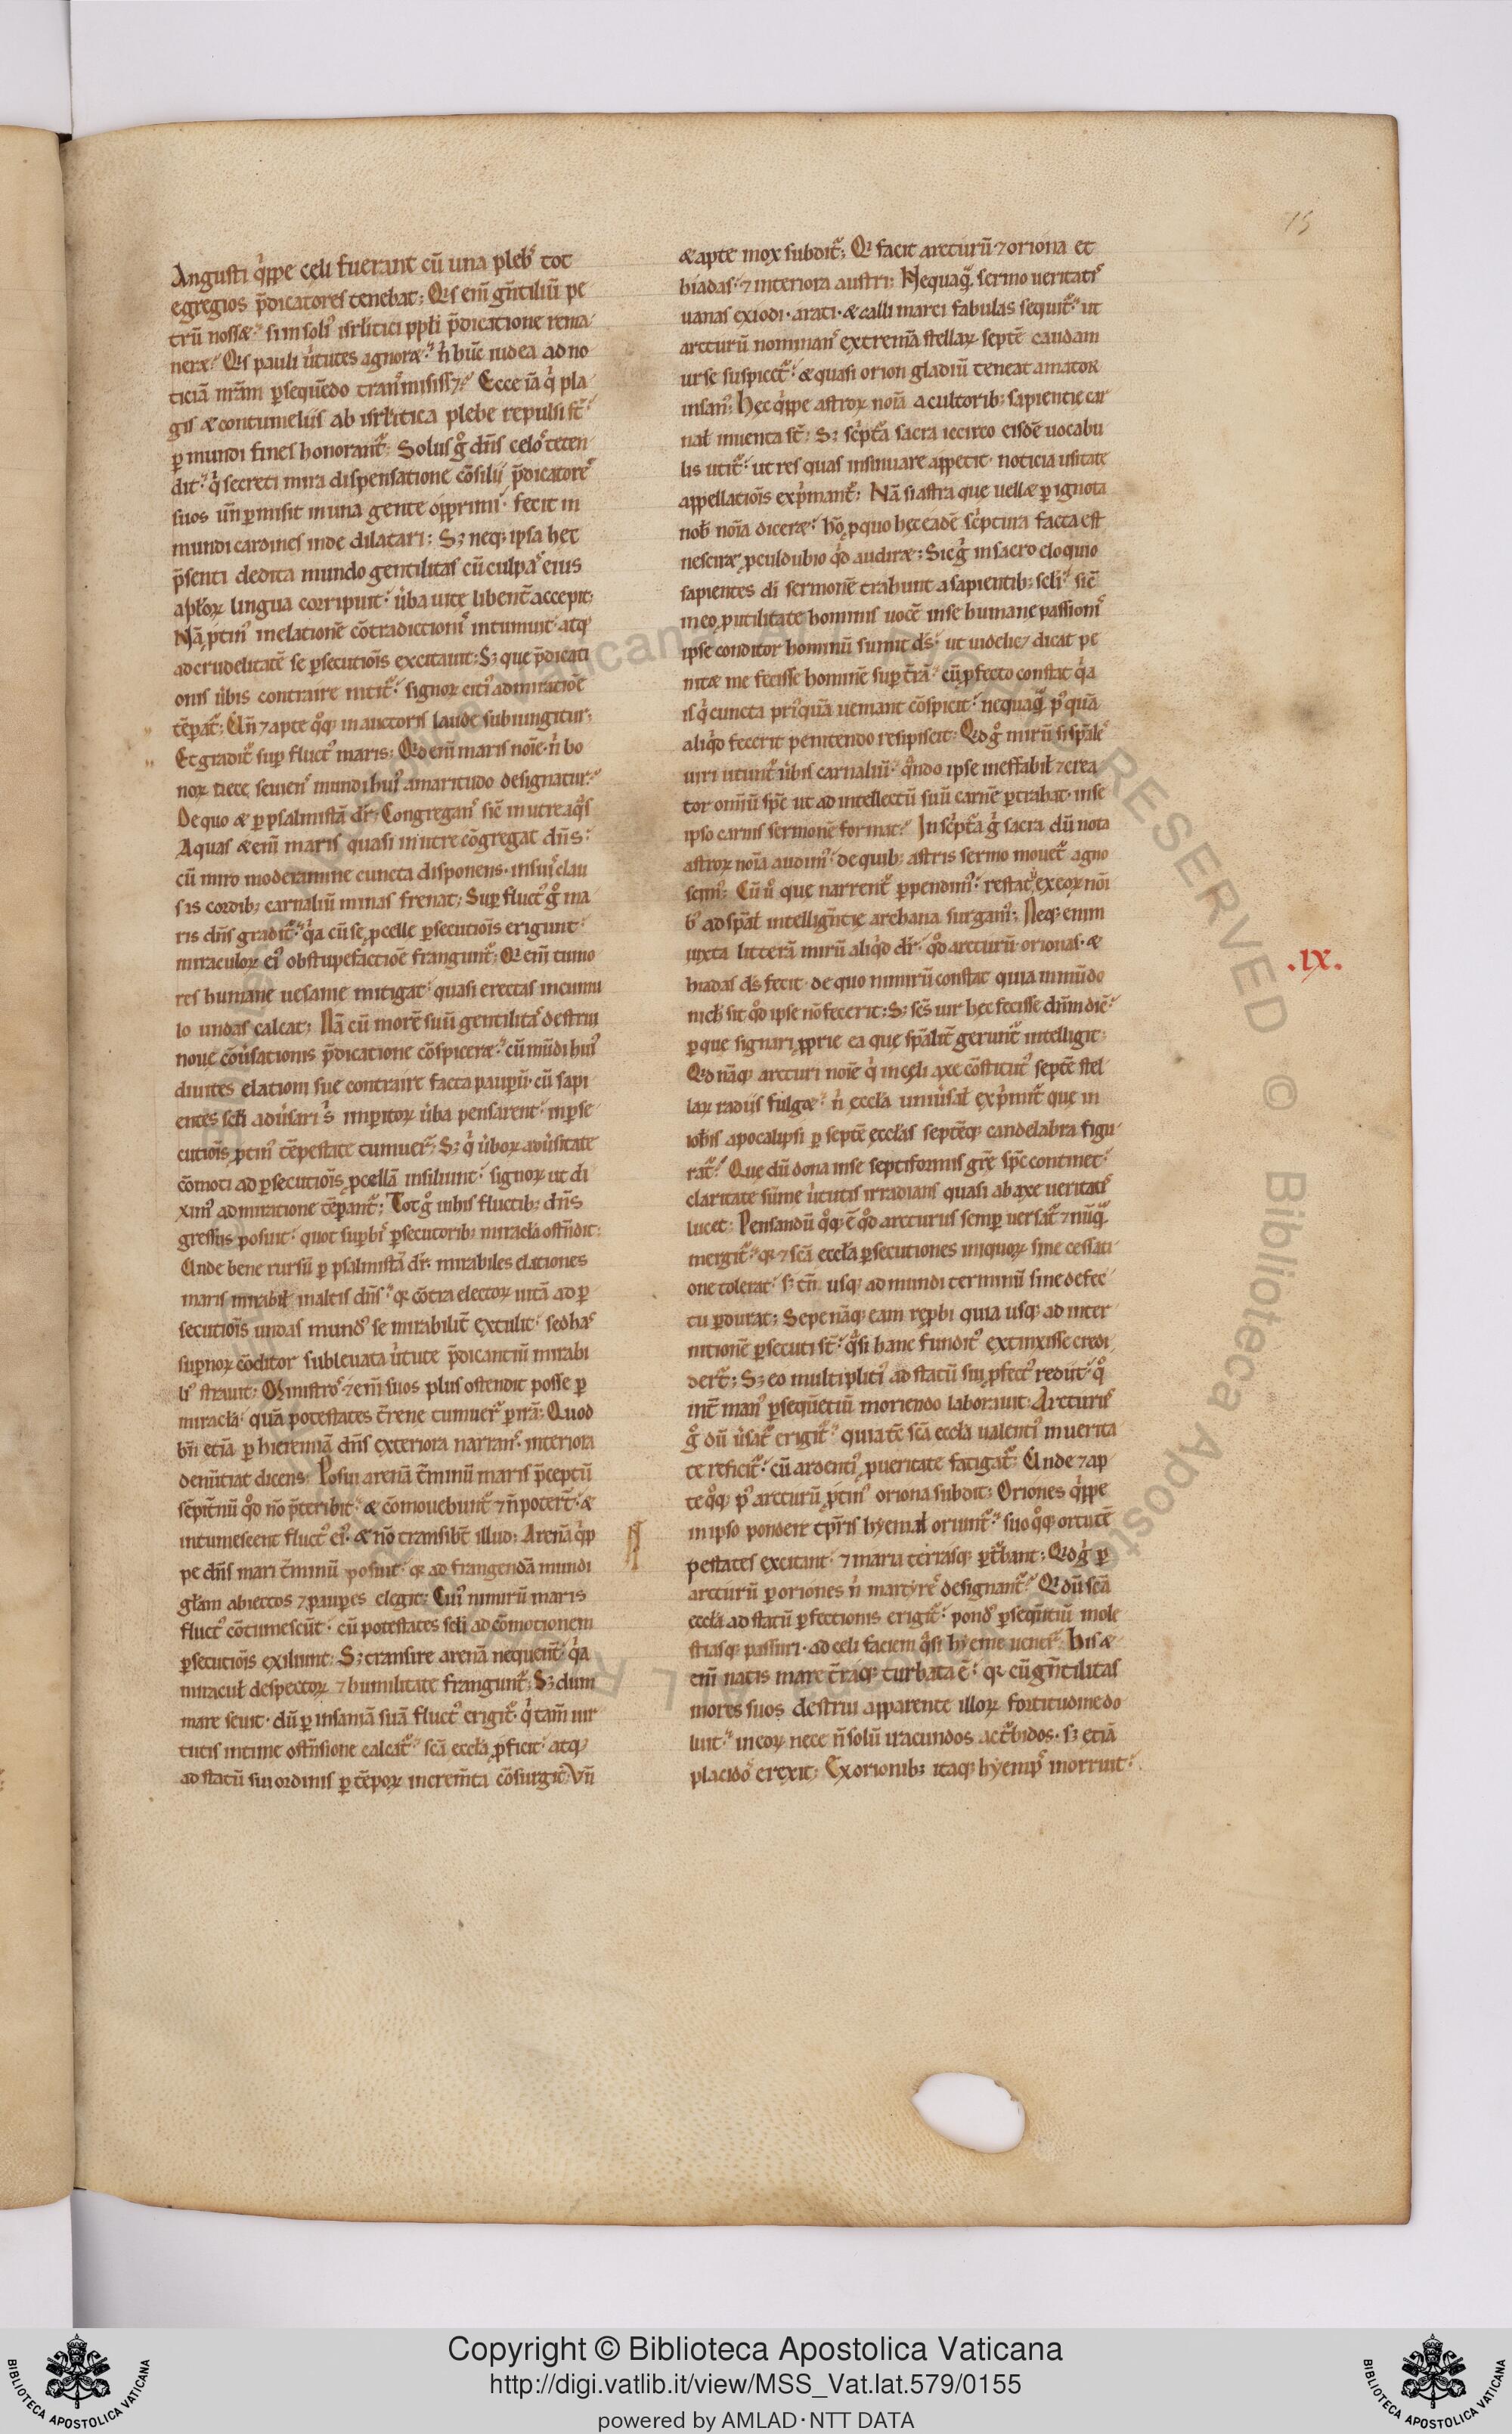 15
Angusti q̓ppe cęli fuerant cū una plebs tot
egregios p̄dicatores tenebat; Q̓s em̄ gn̄tiliū pe
trū nossæ? si in soliꝰ isrl̄itici ppl̓i p̄dicatione rema
neræ? Q̓s pauli ūtutes agnoræ? n̓ hūc iudea ad no
ticiā nr̄am ꝑsequēdo tranˢmisiss⁊? Ecce iā q̓ pla
gis æcontumeliis ab isrl̄itica plebe repulsi st̄
ꝑ mundi fines honorant᷑; Solus g̊ dn̄s celoˢ teten
dit; q̓ secreti mira dispensatione cōsilij p̄dicatoreˢ
suos un̄ ꝑmisit in una gente opprimi; fecit in
mundi cardines inde dilatari; Sꝫ neqꝫ ipsa hec
p̄senti dedita mundo gentilitas cū culpaˢ eius
apl̄oꝝ lingua corripuit; ūba uitę libent̄ accepit;
Nā ꝓtinꝰ in elationē cōtradictioniˢ intumuit; atqꝫ
ad crudelitatē se ꝑsecutiōis excitauit; Sꝫ que p̄dicati
onis ūbis contraire nitit᷑; signoꝝ citiꝰ admiratiōe
tēꝑat᷑; Un̄ ⁊ apte q̊qꝫ in auctoris laude subiungitur;
Et gradit᷑ suꝑ fluctꝰ maris; Qd em̄ maris noīe n̓ bo
noꝝ nece seuienˢ mundi huiꝰ amaritudo designatur?
De quo æ ꝑ psalmistā dr̄; Congreganˢ sic̄ in utre aq̓s
Aquas æ em̄ maris quasi in utre cōgregat dn̄s;
cū miro moderamine cuncta disponens; in suiˢ clau
sas cordibꝫ carnaliū minas frenat; Suꝑ fluctꝰ g̊ ma
ris dn̄s gradit᷑; q̓a cū se ꝓcelle ꝑsecutiōis erigunt;
miraculoꝝ eiꝰ obstupefactiōe frangunt᷑; Q̓ em̄ tumo
res humane uesanie mitigat; quasi erectas in cumu
lo undas calcat; Nā cū morē suū gentilitaˢ destrui
noue cōūsationis p̄dicatione cōspiceræ; cū mūdi huiꝰ
diuites elationi sue contraire facta pauꝑū; cū sapi
entes scl̄i adūsari sˢ imꝑitoꝝ ūba pensarent; in ꝑse
cutiōis ꝓtinꝰ tēpestate tumuer̄; Sꝫ q̓ ūboꝝ adūsitate
cōmoti ad ꝑsecutiōis ꝓcellā insiliunt; signoꝝ ut di
ximꝰ admiratione tēꝑant᷑; Tot g̊ in his fluctibꝫ dn̄s
gressus posuit; quot suꝑbiˢ ꝑsecutoribꝫ miracl̄a ostn̄dit;
Unde bene rursū ꝑ psalmistā dr̄; mirabiles elationes
maris mirabil̓ in altis dn̄s; q̓ cōtra electoꝝ uitā ad ꝑ
secutiōis undas mundˢ se mirabilit̄ extulit; sed haˢ
suꝑnoꝝ cōditor subleuata ūtute p̄dicantiū mirabi
liꝰ strauit; Qd ministroˢ ⁊em̄ suos plus ostendit posse ꝑ
miracl̄a; quā potestates t̄rene tumuer̄ ꝑ irā; Quod
bn̄ etiā ꝑ hieremiā dn̄s exteriora narranˢ; interiora
denūtiat dicens; Posui arenā t̄minū maris p̄ceptū
sēpit̄nū qd̊ nō p̄teribit; æ cōmouebunt᷑ ⁊ n̄ poter̄t; æ
intumescent fluctꝰ eiꝰ; æ nō transibt̄ illud; Arenā q̓p
pe dn̄s mari t̄minū posuit; q̓ ad frangendā mundi
gl̄am abiectos ⁊ pauꝑes elegit; Cuiꝰ nimirū maris
fluctꝰ cōtumescūt; cū potestates scl̄i ad cōmotionem
ꝑsecutiōis exiliunt; Sꝫ transire arenā nequent; q̓a
miracul̓ despectoꝝ ⁊ humilitate frangunt᷑; Sꝫ dum
mare seuit; dū ꝑ insaniā suā fluctꝰ erigit᷑; q̓ tam̄ uir
tutis intime ostn̄sione calcat᷑; scā eccl̄a ꝓficit; atqꝫ
ad statū sui ordinis ꝑ tēpoꝝ incrēmta cōsurgit; Vn̄
æapte mox subdit᷑; Q̓ facit arcturū ⁊ oriona et
hiadas; ⁊ interiora austri; Nequaq̄ sermo ueritatiˢ
uanas exiodi· arati· æ calli marci fabulas sequit᷑; ut
arcturū nominanˢ extremā stellaꝝ septē caudam
urse suspicet᷑; æ quasi orion gladiū teneat amator
insanꝰ; Hęc q̓ppe astroꝝ noīa a cultoribꝫ sapientię car
nal̓ inuenta st̄; Sꝫ sc̓pt̄a sacra iccirco eisdē uocabu
lis utit᷑; ut res quas insinuare appetit; noticia usitate
appellatiōis exp̓mant᷑; Nā si astra que uellæ ꝑ ignota
nob̄ noīa diceræ; hō, ꝓ quo hęc eadē sc̓ptura facta est
nesciræ ꝓculdubio qd̓ audiræ; Sic g̊ in sacro eloquio
sapientes di̓ sermonē trahunt a sapientibꝫ scl̄i; sic̄
in eo, ꝓ utilitate hominis uocē in se humane passioniˢ
ipse conditor hominū sumit dˢ; ut uidelic⁊ dicat pe
nitæ me fecisse hominē suꝑ t̄rā; cū ꝓfecto constat q̓a
is q̓ cuncta priꝰquā ueniant cōspicit; nequaq̄ pꝰquā
aliq̓d fecerit penitendo resipiscit; Qd g̊ mirū si sp̄aleˢ
uiri utunt᷑ ūbis carnaliū; q̄ndo ipse ineffabil̓ ⁊ crea
tor omīū sp̄c ut ad intellectū suū carnē ꝑtrahat· in se
ipso carnis sermonē format? In sc̓pt̄a g̊ sacra dū nota
astroꝝ noīa audimꝰ; de quibꝫ astris sermo mouet᷑ agno
scimꝰ; Cū ů que narrent᷑ ꝑpendimꝰ; restat᷑ ex eoꝝ nōi
bꝰ ad sp̄al̓ intellign̄tie archana surgamꝰ; Neqꝫ enim
iuxta litterā mirū aliq̓d dr̄; qd̊ arcturū· orionas· æ
hiadas dˢ fecit· de quo nimirū constat quia in mūdo
nich̓ sit qd̊ ipse nō fecerit; Sꝫ scs̄ uir hec fecisse dn̄m dic̄;
ꝑ que signari ꝓprie ea que sp̄alit̄ gerunt᷑ intelligit;
Qd nāqꝫ arcturi noīe q̓ in cęli axe cōstitutꝰ septē stel
laꝝ radiis fulgæ; n̓ eccl̄a uniūsal̓ exp̓mit᷑ que in
ioh̄is apocalipsi ꝑ septē ecclas septēqꝫ candelabra figu
rat᷑? Que dū dona in se septiformis gr̄e sp̄c continet;
claritate sūme ūtutis irradians quasi ab axe ueritatiˢ
lucet; Pensandū q̊qꝫ ē qd̊ arcturus semꝑ uersat᷑ ⁊ nūq̄
mergit᷑; q̓ ⁊ scā eccl̄a ꝑsecutiones iniquoꝝ sine cessati
one tolerat; sꝫ tn̄ usqꝫ ad mundi terminū sine defec
tu ꝑdurat; Sepe nāqꝫ eam rep̄bi quia usqꝫ ad inter
nitionē ꝑsecuti st̄; q̄si hanc funditꝰ extinxisse credi
der̄t; Sꝫ eo multipliciꝰ ad statū sui ꝓfectꝰ rediit; q̊
int̄ manꝰ ꝑsequētiū moriendo laborauit; Arcturꝰ
g̊ dū ūsat᷑ erigit᷑; quia tc̄ scā eccl̄a ualentiꝰ in uerita
te reficit᷑; cū ardentiꝰ, ꝓ ueritate fatigat᷑; Unde ⁊ ap
te q̊qꝫ pꝰ arcturū ꝓtinꝰ oriona subdit; Oriones q̓ppe
in ipso pondere tp̄ris hyemal̓ oriunt᷑; suo q̊qꝫ ortu tē
pestates excitant; ⁊ maria terrasqꝫ ꝑt̄bant; Qd g̊ ꝑ
arcturū ꝑ oriones n̓ martyreˢ designant᷑? Q̓ dū scā
eccl̄a ad statū ꝑfectionis erigit᷑; pondˢ ꝑsequn̄tiū mole
stiasqꝫ passuri· ad celi faciem q̄si hyeme uener̄; His æ
em̄ natis mare t̄raqꝫ turbata ē; q̓ cū gn̄tilitas
mores suos destrui apparente illoꝝ fortitudine do
luit; in eoꝝ nece n̄ solū iracundos ac t̄bidos· sꝫ etiā
placidoˢ erexit; Ex orionibꝫ itaqꝫ hyempˢ inorruit;
.IX.
Copyright © Biblioteca Apostolica Vaticana
http://digi.vatlib.it/view/MSS_Vat.lat.579/0155
powered by AMLAD·NTT DATA
BIBLIOTECA APOSTOLICA VATICANA
BIBLIOTECA APOSTOLICA VATICANA